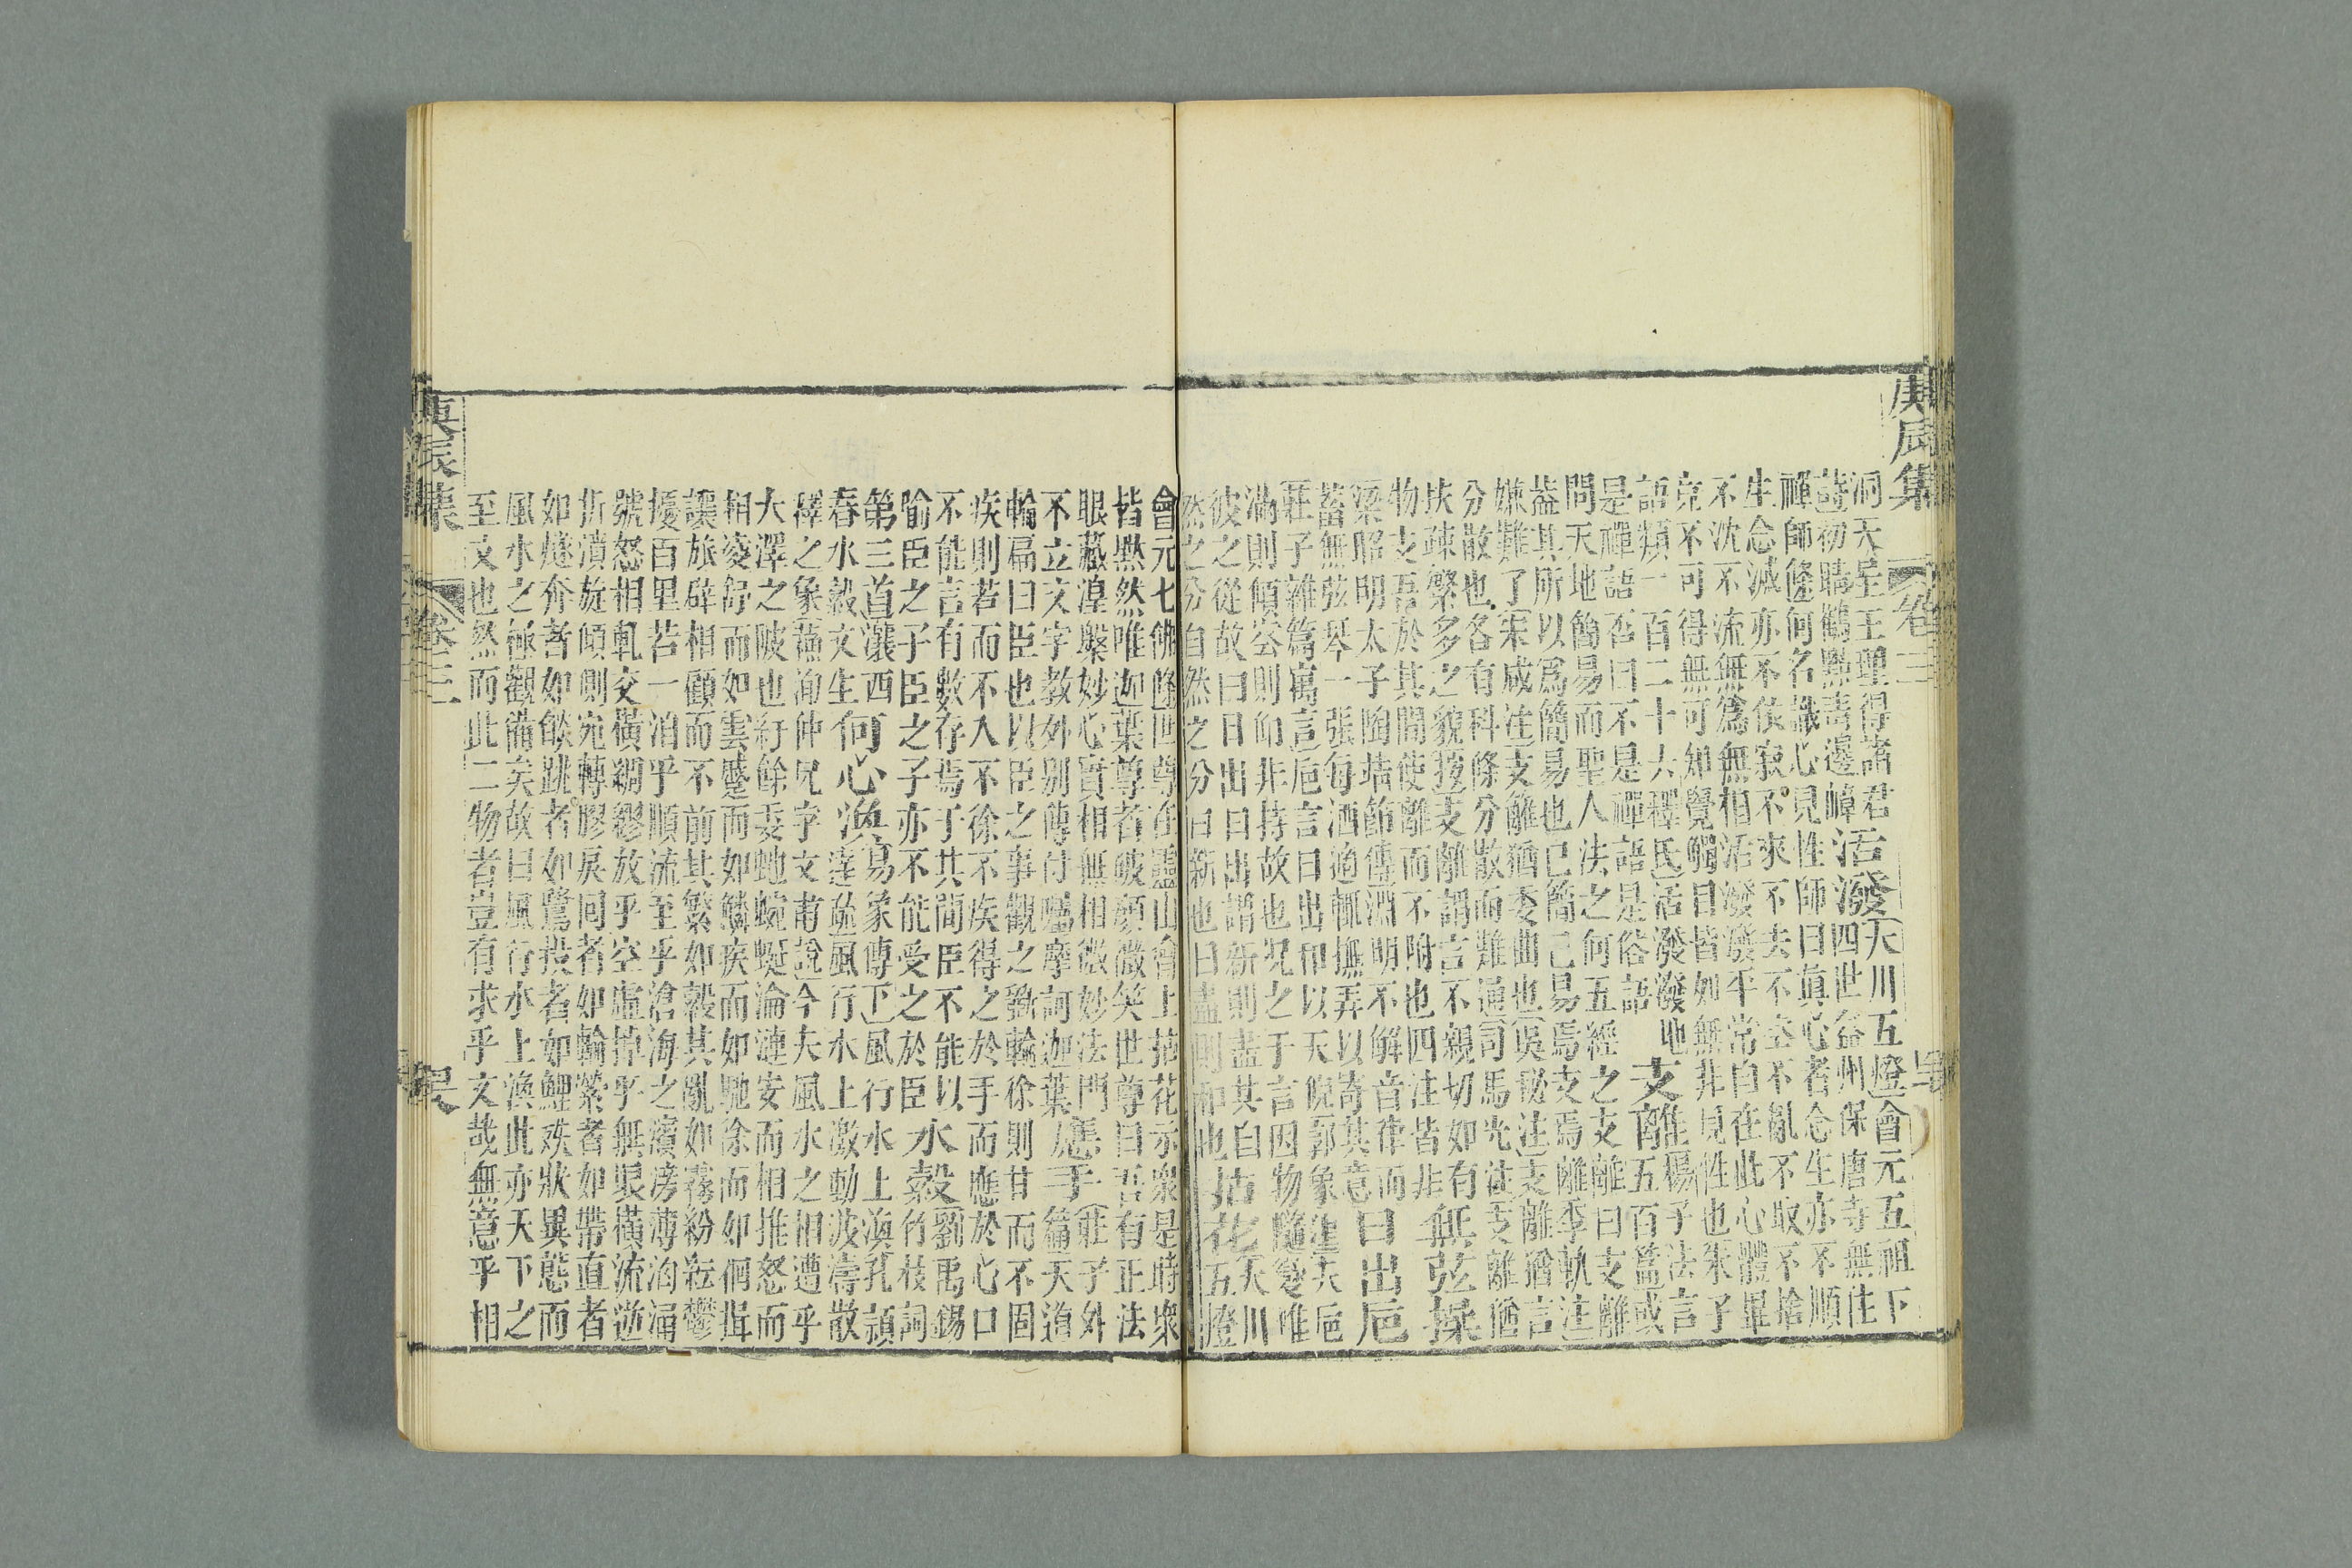 庚辰集 卷三
洞天星王理得諸君
詩初晴鶴點青邊幛
活潑
大川五燈會元五祖下
四世益州保唐寺無住
禪師條何名識心見性師曰真心者念生亦不順
生念滅亦不依寂不來不去不空不亂不取不捨
不沈不流無為無相活潑潑平常自在此心體畢
竟不可得無可知覺觸目皆如無非見性也朱子
語類一百二十六釋氏活潑潑地
是禪語否曰不是禪語是俗語
支離
楊子法言
五百篇或
問天地簡易而聖人法之何五經之支離曰支離
葢其所以爲簡易也已簡已易焉支焉離李軌注
嫌難了宋咸注支離猶委曲也吳祕注支離猶言
分散也各有科條分散而難通司馬光注支離猶
扶疎繁多之貌按支離謂言不親切如有
物支吾於其間使離而不附也四注皆非
無弦操
梁昭明太子陶靖節傳淵明不解音律而
蓄無弦琴一張每酒適輒撫弄以寄其意
日出卮
莊子雜篇寓言卮言日出和以天倪郭象注夫卮
滿則傾空則仰非持故也況之于言因物隨變唯
彼之從故曰日出日出謂新則盡其自
然之分自然之分曰新也曰盡則和也
拈花
大川
五燈
會元七佛條世尊在靈山會上拈花示衆是時衆
皆默然唯迦葉尊者破顏微笑世尊曰吾有正法
眼藏湼槃妙心實相無相微妙法門
不立文字教外別傳付囑摩訶迦葉
應手
莊子外
篇天道
輪扁曰臣也以臣之事觀之斵輪徐則甘而不固
疾則苦而不入不徐不疾得之於手而應於心口
不能言有數存焉于其間臣不能以
喻臣之子臣之子亦不能受之於臣
水縠
劉禹錫
竹枝詞
第三首瀼西
春水縠文生
何心渙
易象傳下風行水上渙孔穎
達疏風行水上激動波濤散
釋之象蘇洵仲兄字文甫說今夫風水之相遭乎
大澤之陂也紆餘委蛇蜿蜒淪漣安而相推怒而
相凌舒而如雲蹙而如鱗疾而如馳徐而如徊揖
讓旋辟相顧而不前其繁如縠其亂如霧紛紜鬱
擾百里若一汩乎順流至乎滄海之濱滂薄洶湧
號怒相軋交橫綢繆放乎空虛掉乎無垠橫流逆
折濆旋傾側宛轉膠戾回者如輪縈者如帶直者
如燧奔者如燄跳者如鷺投者如鯉殊狀異態而
風水之極觀備矣故曰風行水上渙此亦天下之
至文也然而此二物者豈有求乎文哉無意乎相
庚辰集 卷三